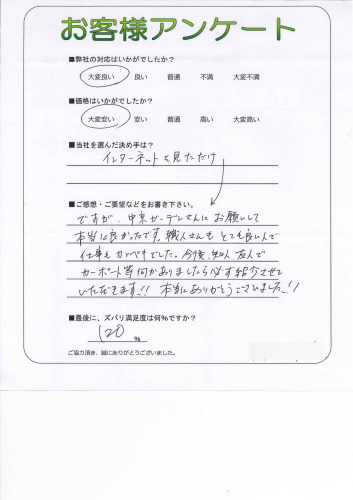 お客様アンケート
■弊社の対応はいかがでしたか?
大変良い 良い 普通 不満 大変不満
■価格はいかがでしたか?
大変安い 安い 普通 高い 大変高い
■当社を選んだ決め手は?
インターネットを見ただけ
■ご感想・ご要望などをお書き下さい。
ですが、中京ガーデンさんにお願いして
本当に良かったです。職人さんもとても良い人で
仕事もカンペキでした。今後、知人 友人で
カーポート等何かありましたら必ず紹介させて
いただきます!! 本当にありがとうございました!!
■最後に、ズバリ満足度は何%ですか?
120 %
ご協力頂き、誠にありがとうございました。